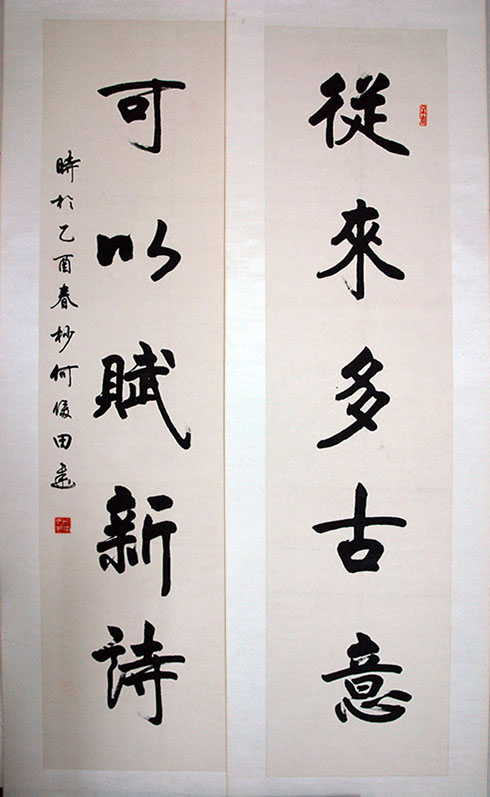 從來多古意
可以賦新詩
時於乙酉春杪何俊田書